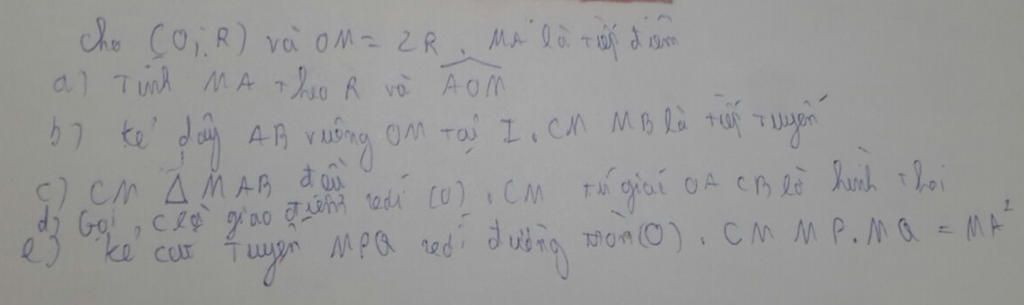 Cho (O; R) và OM = 2R. MA là tiếp điểm
a) Tính MA theo R và AOM
b) Kẻ dây AB vuông OM tại I. CM MB là tiếp tuyến
c) CM Δ MAB đều
d) Gọi C là giao điểm với (O). CM tứ giác OACB là hình thoi
e) Kẻ cát tuyến MPQ với đường tròn (O). CM MP.MQ = MA²